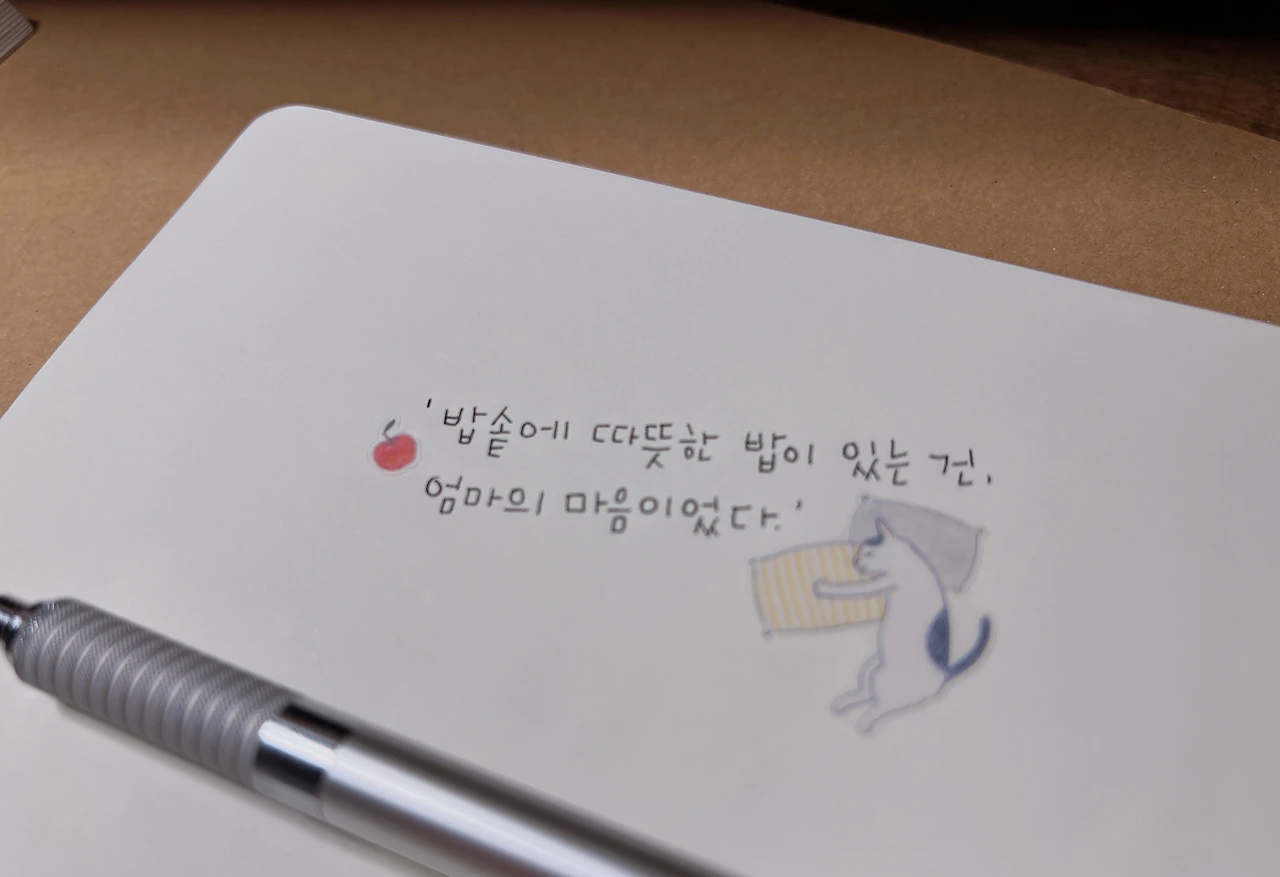 '밥솥에 따뜻한 밥이 있는 건,
엄마의 마음이었다.'